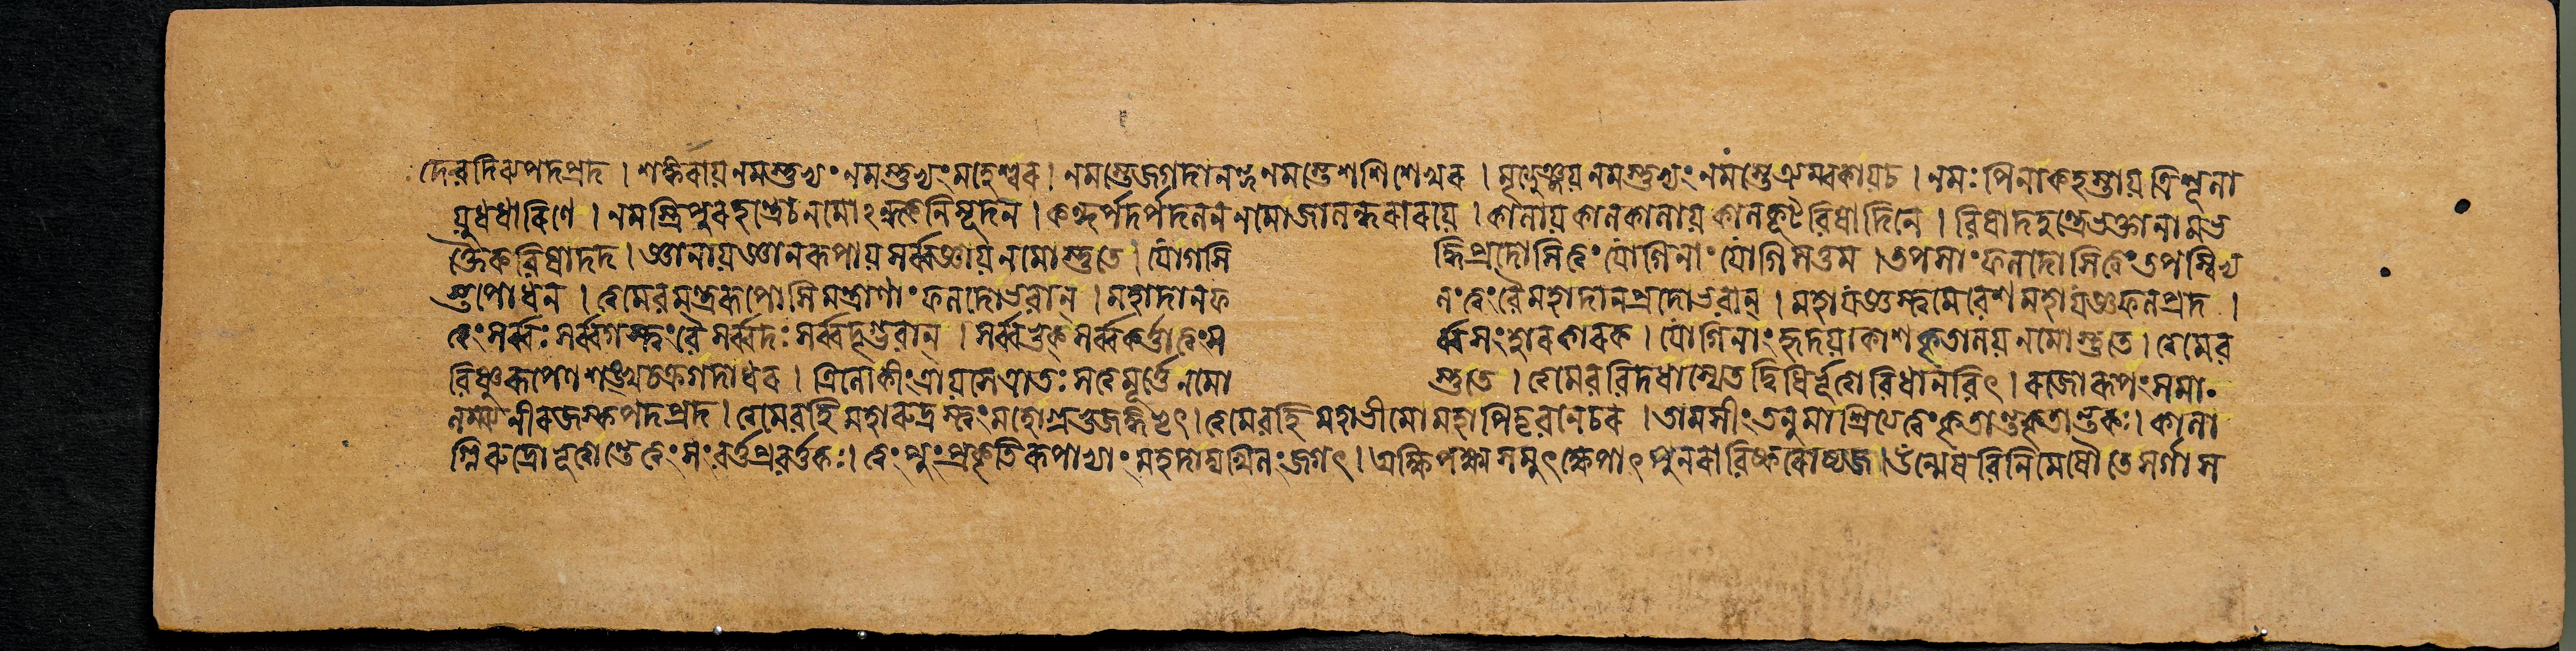 দেবদিব্যপদপ্রদ । শঙ্করায় নমস্তুভ্যং নমস্তুভ্যং মহেশ্বর। নমস্তে জগদানন্দ নমস্তে শশিশেখর । মৃত্যুঞ্জয় নমস্তুভ্যং নমস্তে ত্র্যম্বকায় চ । নমঃ পিনাকহস্তায় ত্রিশূলা
য়ুধধারিণে । নমস্ত্রিপুরহন্ত্রে চ নমোঽন্ধকনিসূদন । কন্দর্পদর্পদলন নমো জালন্ধরারয়ে । কালায় কালকালায় কালকূটবিষাদিনে । বিষাদহন্ত্রে ভক্তানামভ
ক্তৈকবিষাদদ । জ্ঞানায় জ্ঞানরূপায় সর্ব্বজ্ঞায় নমোস্তুতে । যোগসি দ্ধিপ্রদোসি ত্বং যোগিনাং যোগিসত্তম । তপসাং ফলদোসি ত্বং তপস্বিভ্য
স্তপোধন । ত্বমেব মন্ত্ররূপোসি মন্ত্রাণাং ফলদো ভবান্ । মহাদানফ লং ত্বং বৈ মহাদানপ্রদো ভবান্ । মহাযজ্ঞস্ত্বমেবেশ মহাযজ্ঞফলপ্রদ ।
ত্বং সর্ব্বঃ সর্ব্বগস্ত্বং বৈ সর্ব্বদঃ সর্ব্বদৃগ্ভবান্ । সর্ব্বভুক্ সর্ব্বকর্ত্তা ত্বং স র্ব্বসংহারকারক । যোগিনাং হৃদয়াকাশকৃতালয় নমোস্তুতে । ত্বমেব
বিষ্ণুরূপেণ শঙ্খচক্রগদাধর । ত্রিলোকীং ত্রায়সে ত্রাতঃ সত্বমূর্ত্তে নমো স্তুতে । ত্বমেব বিদধাস্যেতদ্বিধির্ভূত্বা বিধানবিৎ । রজোরূপং সমা
লম্ব্য নীরজস্কপদপ্রদ । ত্বমেব হি মহারুদ্রস্ত্বং মহোগ্রভুজঙ্গভৃৎ । ত্বমেব হি মহাভীমো মহাপিতৃবনেচর । তামসীং তনুমাশ্রিত্য ত্বং কৃতান্তকৃতান্তকঃ। কালা
গ্নিরুদ্রো ভূত্বান্তে ত্বং সংবর্ত্তপ্রবর্ত্তকঃ। ত্বং পুংপ্রকৃতিরূপাভ্যাং মহদাদ্যখিলং জগৎ । অক্ষিপক্ষ্মসমুৎক্ষেপাৎ পুনরাবিষ্করোষ্যজ । উন্মেষবিনিমেষৌ তে সর্গাস